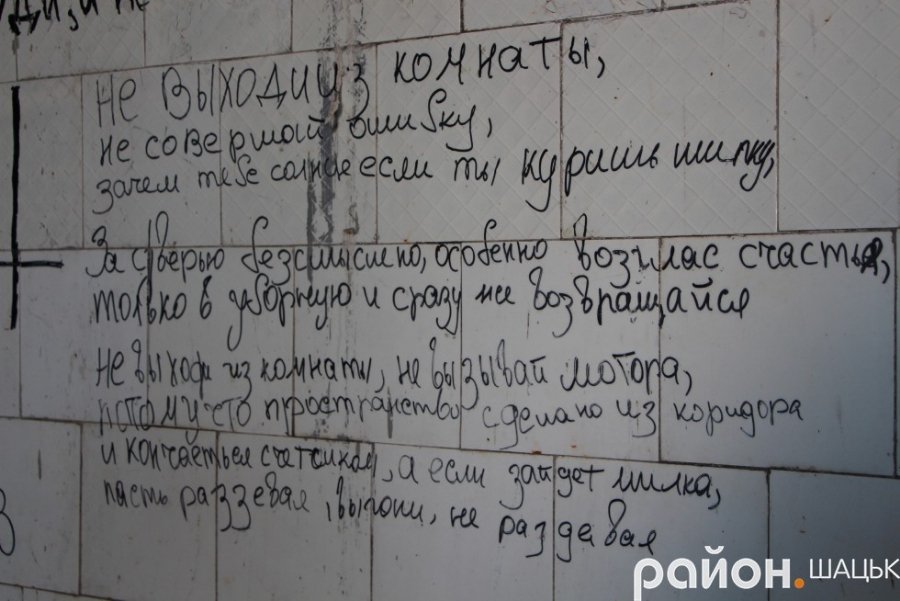 не выходи из комнаты,
не совершай ошибку,
зачем тебе солнце если ты куришь шипку,
За дверью безсмысленно, особенно возглас счастья,
только в уборную и сразу же возвращайся
не выходи из комнаты, не вызывай мотора,
потому что пространство сделано из коридора
и кончаеться счетчиком, а если зайдет милка,
пасть раззевая, выгони, не раздевая
район.шацьк